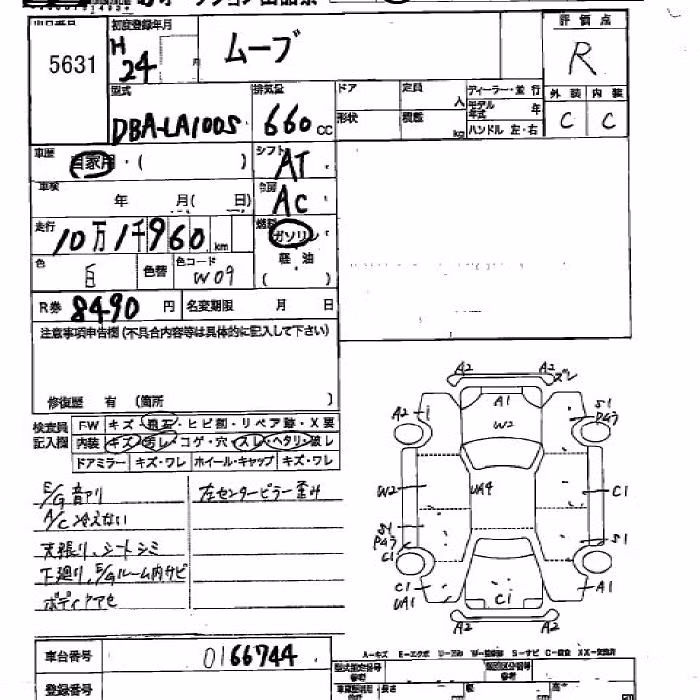 5631
初度登録年月
H
24
ムーブ
評価点
R
外装 内装
C C
型式
DBA-LA100S
排気量
660 cc
ドア
定員
人
形状
積載
kg
ディーラー・並行
モデル年式
年
ハンドル 左・右
車歴
自家用・( )
シフト
AT
車検
年 月( 日)
冷房
AC
走行
10万1千960 km
燃料
ガソリン
軽油
( )
色
白
色替
色コード
W09
R券 8490 円
名変期限 月 日
注意事項申告欄(不具合内容等は具体的に記入して下さい)
修復歴 有 (箇所 )
検査員記入欄
FW キズ・飛石・ヒビ割・リペア跡・X要
内装 キズ・汚レ・コゲ・穴・スレ・ヘタリ・破レ
ドアミラー キズ・ワレ ホイール・キャップ キズ・ワレ
E/G音アリ
左センターピラー歪み
A/C冷えない
天張り、シートシミ
下廻り、E/Gルーム内サビ
ボディアセ
A2 A2
A1
W2
A2
S1
W2
UA4
C1
S1
C1
S1
C1
UA1
C1
A1
A2 A2
車台番号 0166744
登録番号
型式指定番号
(参考)
類別区分番号
(参考)
長さ
幅
高